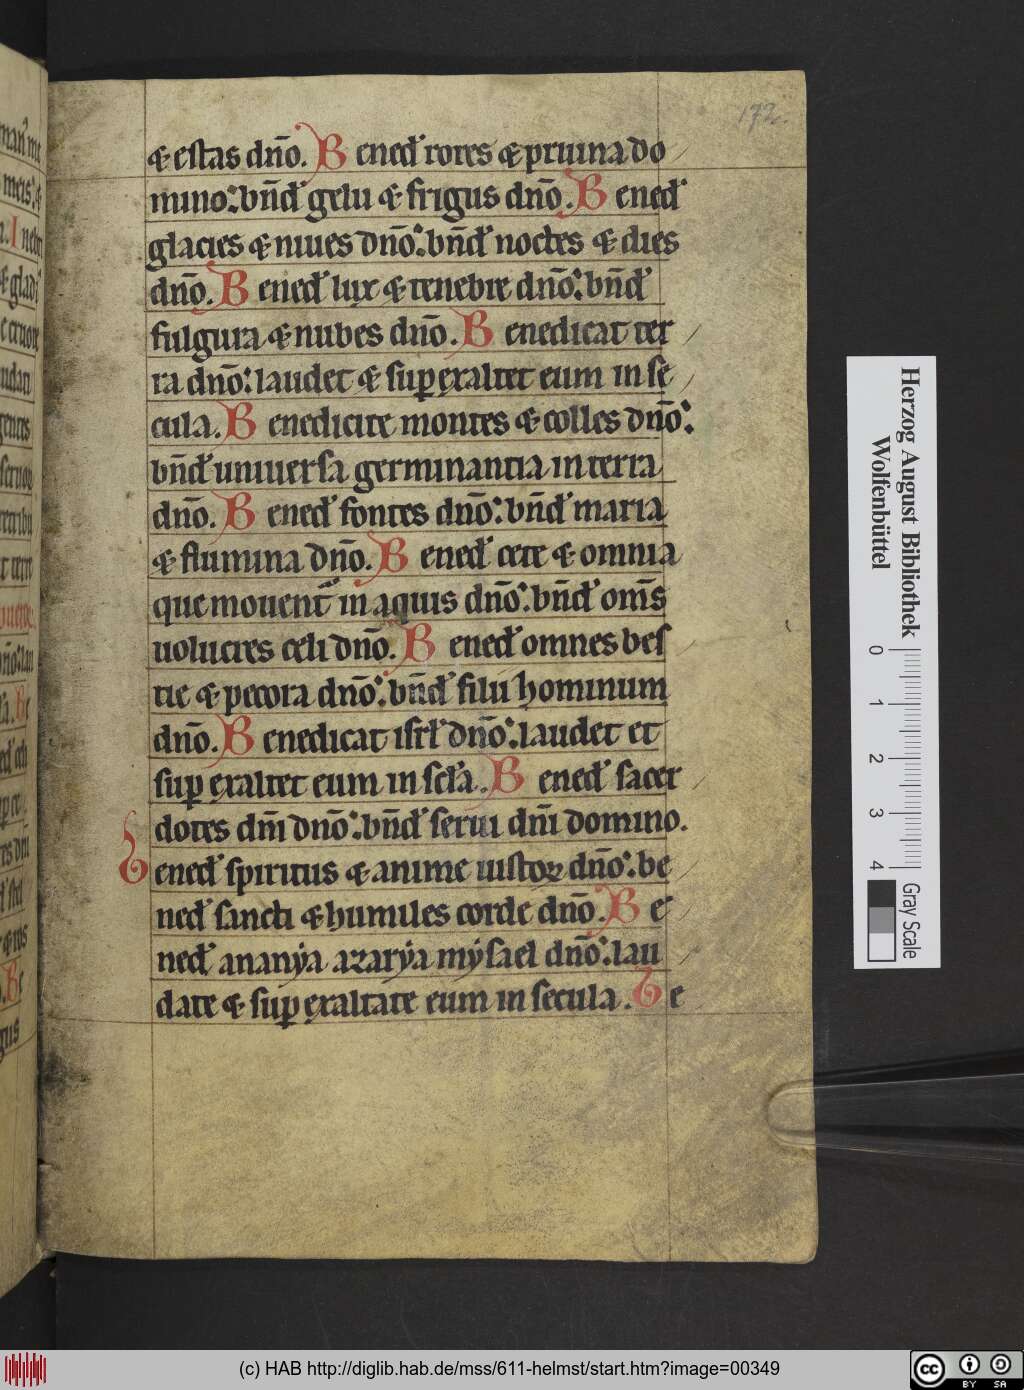 172.
& estas dn̄o. Bened᷎ rores & pruina do
mino: bn̄d᷎ gelu & frigus dn̄o. Bened᷎
glacies & niues dn̄o: bn̄d᷎ noctes & dies
dn̄o. Bened᷎ lux & tenebre dn̄o: bn̄d᷎
fulgura & nubes dn̄o. Benedicat ter
ra dn̄o: laudet & suꝑexaltet eum in se
cula. Benedicite montes & colles dn̄o:
bn̄d᷎ uniuersa germinantia in terra
dn̄o. Bened᷎ fontes dn̄o: bn̄d᷎ maria
& flumina dn̄o. Bened᷎ cete & omnia
que mouent᷑ in aquis dn̄o: bn̄d᷎ om̄s
uolucres celi dn̄o. Bened᷎ omnes bes
tie & pecora dn̄o: bn̄d᷎ filii hominum
dn̄o. Benedicat isrl᷎ dn̄o: laudet et
suꝑ exaltet eum in scl᷎a. Bened᷎ sacer
dotes dn̄i dn̄o: bn̄d᷎ serui dn̄i domino.
Bened᷎ spiritus & anime iustoꝝ dn̄o: be
ned᷎ sancti & humiles corde dn̄o. Be
ned᷎ ananẏa azarẏa mẏsael dn̄o: lau
date & suꝑ exaltate eum in secula. Be
Herzog August Bibliothek
Wolfenbüttel
0 1 2 3 4
Gray Scale
(c) HAB http://diglib.hab.de/mss/611-helmst/start.htm?image=00349
cc BY SA